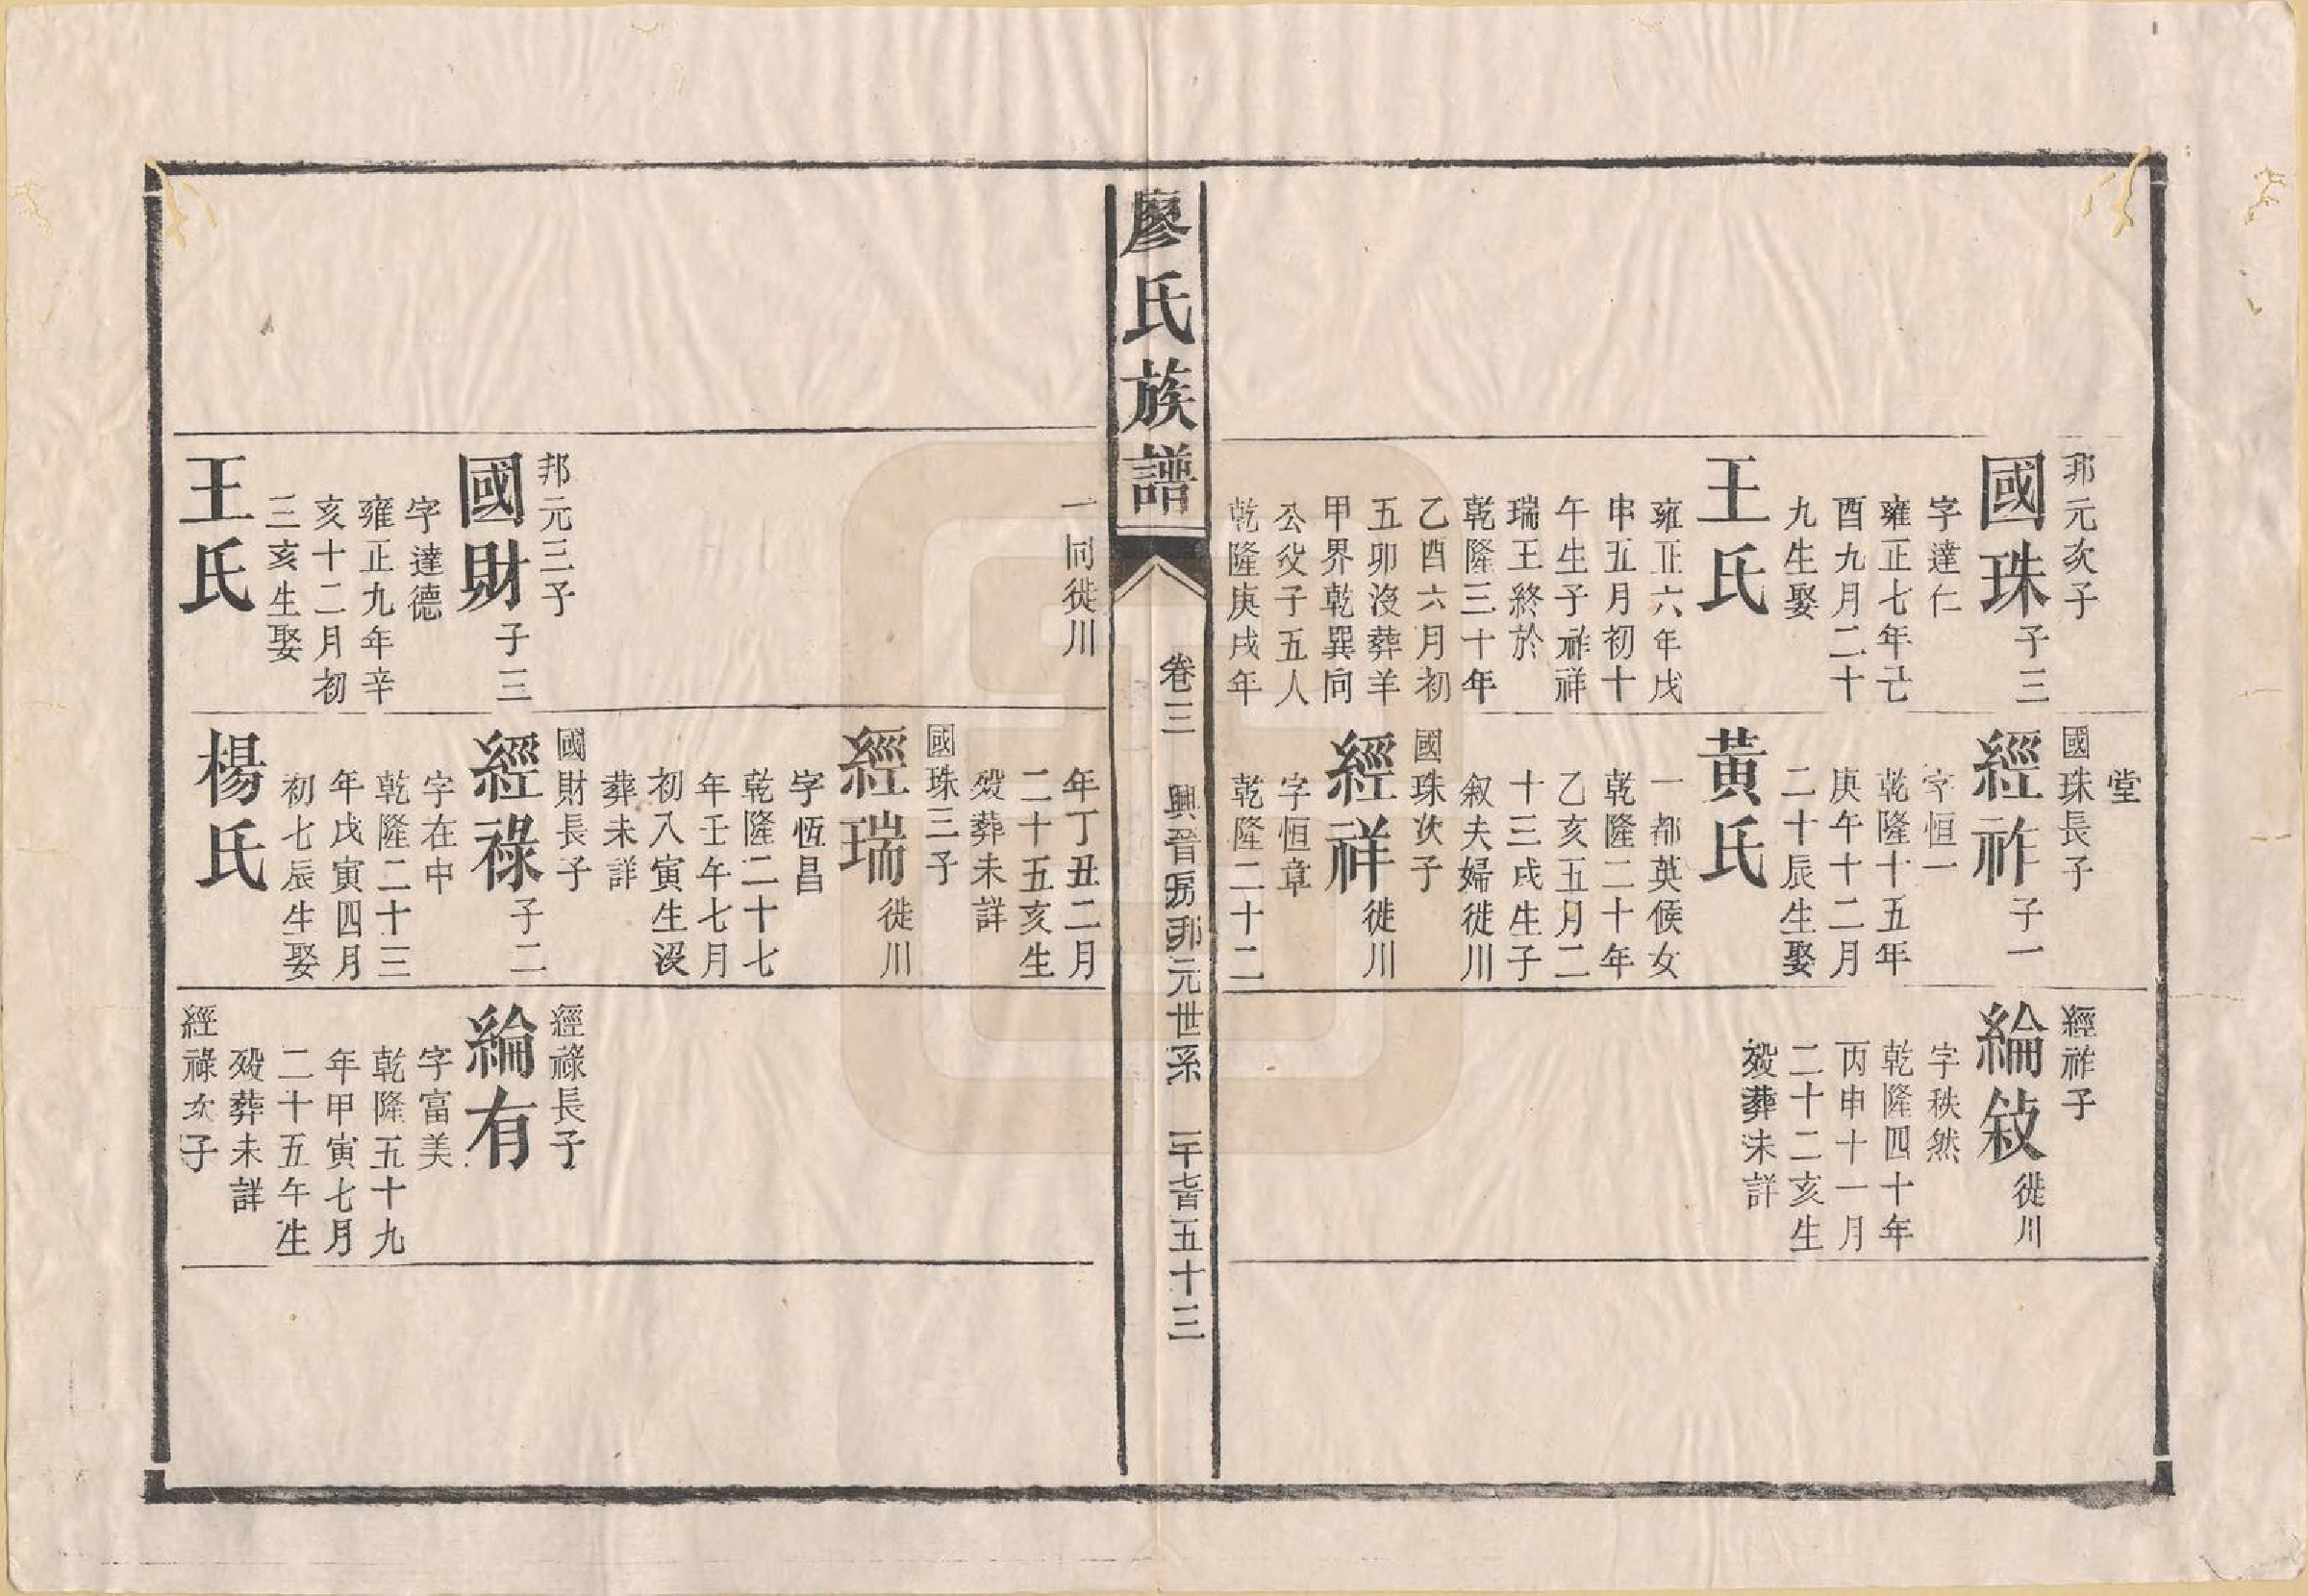 邦元次子
國珠子三
字達仁
雍正七年己
酉九月二十
九生娶
王氏
雍正六年戊
申五月初十
午生子祚祥
瑞王終於
乾隆三十年
乙酉六月初
五卯沒葬羊
甲界乾巽同
公役子五人
乾隆庚戌年
堂
國珠長子
經祚子一
字恒一
乾隆十五年
庚午十二月
二十辰生娶
黃氏
一都英候女
乾隆二十年
乙亥五月二
十三戌生子
敘夫婦徙川
國珠次子
經祥徙川
字恒章
乾隆二十二
經祚子
綸敍徙川
字秩然
乾隆四十年
丙申十一月
二十二亥生
歿葬未詳
廖氏族譜
卷三
興晉房邦元世系
一千七百五十三
一同徙川
邦元三子
國財子三
字達德
雍正九年辛
亥十二月初
三亥生娶
王氏
年丁丑二月
二十五亥生
歿葬未詳
國珠三子
經瑞徙川
字恆昌
乾隆二十七
年壬午七月
初入寅生沒
葬未詳
國財長子
經祿子二
字在中
乾隆二十三
年戊寅四月
初七辰生娶
楊氏
經祿長子
綸有
字富美
乾隆五十九
年甲寅七月
二十五午生
歿葬未詳
經祿次子